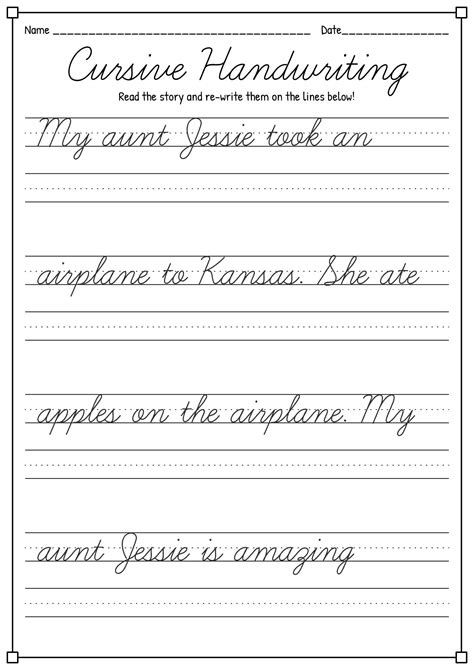 Name ____________________ Date____________
Cursive Handwriting
Read the story and re-write them on the lines below!
My aunt Jessie took an
airplane to Kansas. She ate
apples on the airplane. My
aunt Jessie is amazing